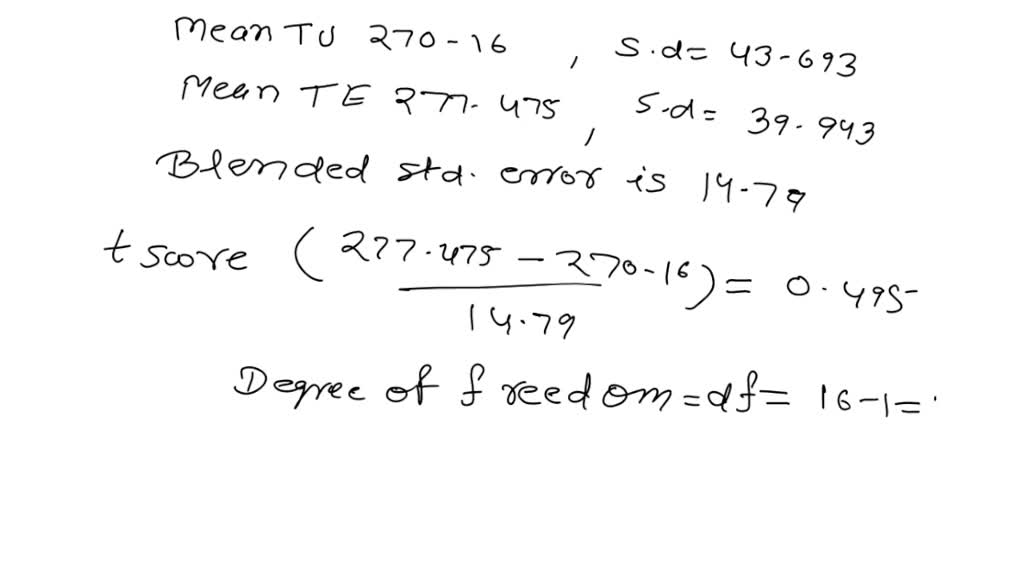 Mean TU 270-16 , S.d= 43-693
Mean TE 277.475 , S.d= 39.943
Blended std. error is 14.79
t score (277.475 - 270-16) = 0.495
14.79
Degree of freedom = df = 16-1=